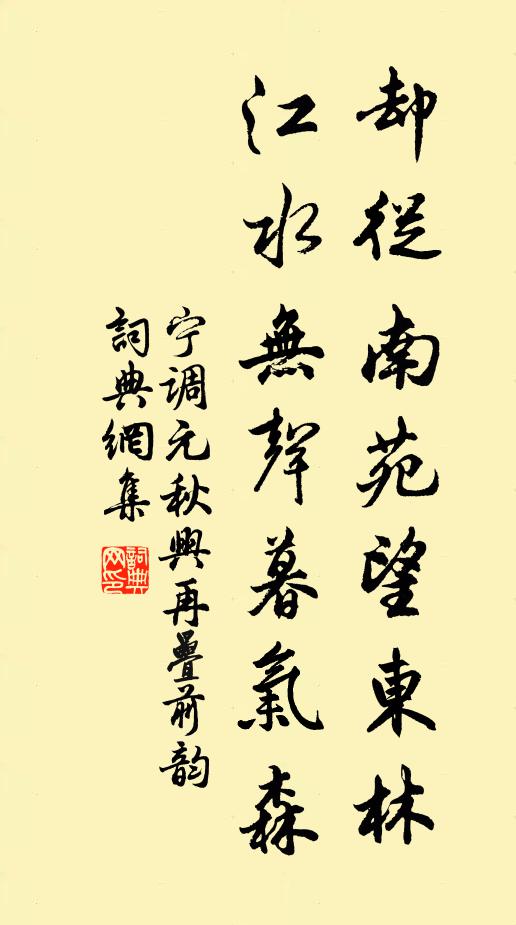 却從南苑望東林
江水無聲暮氣森
宁调元秋興再疊前韵
詞典網集
詞典網印